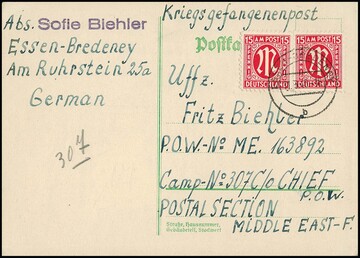 Abs. Sofie Biehler
Essen-Bredeney
Am Ruhrstein 25a
German
307
Kriegsgefangenenpost
Postka
15 AM POST 15
DEUTSCHLAND
15 AM POST 15
DEUTSCHLAND
b
Uffz.
Fritz Biehler
P.O.W.-No ME. 163892
Camp-No 307 C/o CHIEF
P.O.W.
POSTAL SECTION
MIDDLE EAST-F.
Straße, Hausnummer,